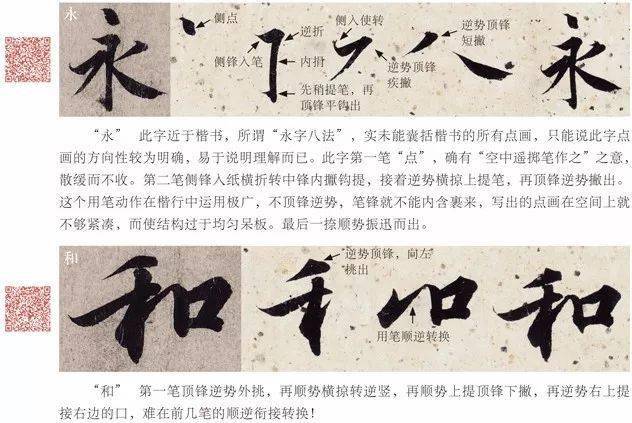 永
永
侧点
逆折
侧锋入笔
内擫
先稍提笔，再
顶锋平钩出
侧入使转
逆势顶锋
疾撇
逆势顶锋
短撇
永
“永” 此字近于楷书，所谓“永字八法”，实未能囊括楷书的所有点画，只能说此字点
画的方向性较为明确，易于说明理解而已。此字第一笔“点”，确有“空中遥掷笔作之”之意，
散缓而不收。第二笔侧锋入纸横折转中锋内擫钩提，接着逆势横掠上提笔，再顶锋逆势撇出。
这个用笔动作在楷行中运用极广，不顶锋逆势，笔锋就不能内含裹来，写出的点画在空间上就
不够紧凑，而使结构过于均匀呆板。最后一捺顺势振迅而出。
和
和
逆势顶锋，向左
挑出
用笔顺逆转换
和
“和” 第一笔顶锋逆势外挑，再顺势横掠转逆竖，再顺势上提顶锋下撇，再逆势右上提
接右边的口，难在前几笔的顺逆衔接转换！